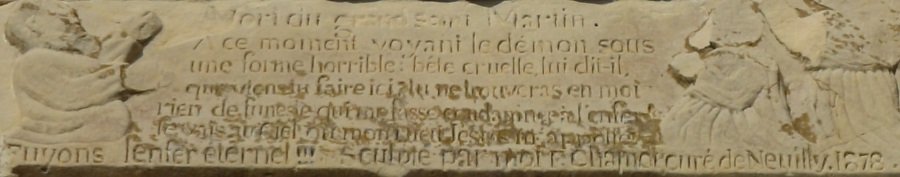 Mort du grand saint Martin.
A ce moment voyant le démon sous
une forme horrible: bête cruelle, lui dit-il,
que viens tu faire ici, tu ne trouveras en moi
rien de funeste qui me fasse condamner à l'enfer
Je vais au ciel mon
Fuyons l'enfer éternel !!! Sculpté par moi curé de Neuilly. 1878.